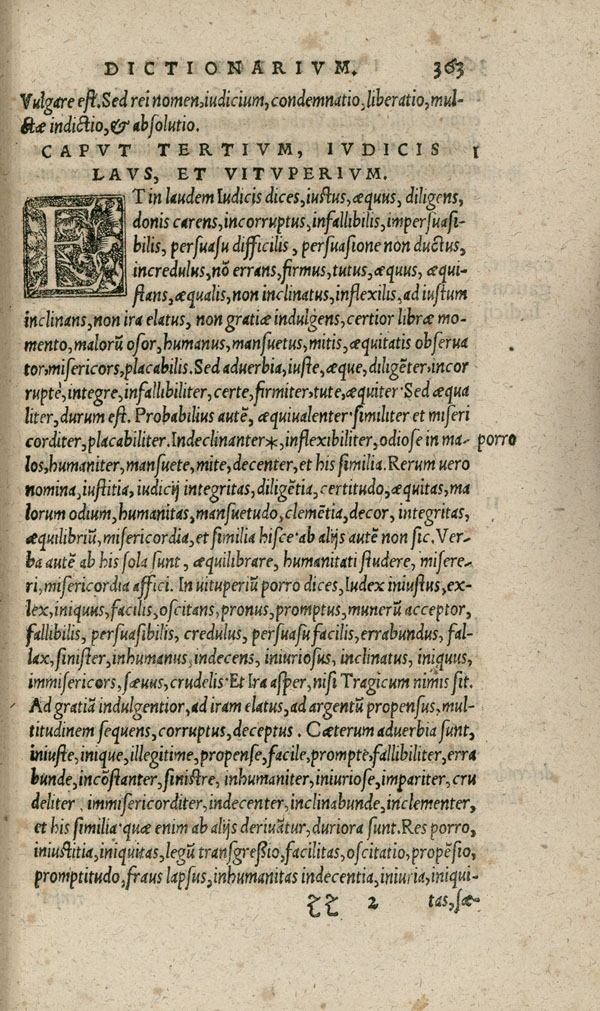 DICTIONARIVM. 363
Vulgare est. Sed rei nomen, iudicium, condemnatio, liberatio, mul-
ctæ indictio, & absolutio.
CAPVT TERTIVM, IVDICIS I
LAVS, ET VITVPERIVM.
ET in laudem Iudicis dices, iustus, æquus, diligens,
donis carens, incorruptus, infallibilis, impersuasi-
bilis, persuasu difficilis, persuasione non ductus,
incredulus, nō errans, firmus, tutus, æquus, æqui-
stans, æqualis, non inclinatus, inflexilis, ad iustum
inclinans, non ira elatus, non gratiæ indulgens, certior libræ mo-
mento, malorū osor, humanus, mansuetus, mitis, æquitatis obserua
tor, misericors, placabilis. Sed aduerbia, iuste, æque, diligēter, incor
ruptè, integre, infallibiliter, certe, firmiter, tute, æquiter. Sed æqua
liter, durum est. Probabilius autē, æquiualenter. similiter et miseri
corditer, placabiliter. Indeclinanter*, inflexibiliter, odiose in ma- porro
los, humaniter, mansuete, mite, decenter, et his similia. Rerum uero
nomina, iustitia, iudicij integritas, diligētia, certitudo, æquitas, ma
lorum odium, humanitas, mansuetudo, clemētia, decor, integritas,
æquilibriū, misericordia, et similia hisce. ab alijs autē non sic. Ver-
ba autē ab his sola sunt, æquilibrare, humanitati studere, misere-
ri, misericordia affici. In vituperiū porro dices, Iudex iniustus, ex-
lex, iniquus, facilis, oscitans, pronus, promptus, munerū acceptor,
fallibilis, persuasibilis, credulus, persuasu facilis, errabundus, fal-
lax, sinister, inhumanus, indecens, iniuriosus, inclinatus, iniquus,
immisericors, sæuus, crudelis. Et Ira asper, nisi Tragicum nimis sit.
Ad gratiā indulgentior, ad iram elatus, ad argentū propensus, mul-
titudinem sequens, corruptus, deceptus. Cæterum aduerbia sunt,
iniuste, inique, illegitime, propense, facile, prompte, fallibiliter, erra
bunde, incōstanter, sinistre, inhumaniter, iniuriose, impariter, cru
deliter, immisericorditer, indecenter, inclinabunde, inclementer,
et his similia. quæ enim ab alijs deriuātur, duriora sunt. Res porro,
iniustitia, iniquitas, legū transgressio, facilitas, oscitatio, propēsio,
promptitudo, fraus lapsus, inhumanitas indecentia, iniuria, iniqui-
ζζ 2 tas, sæ-